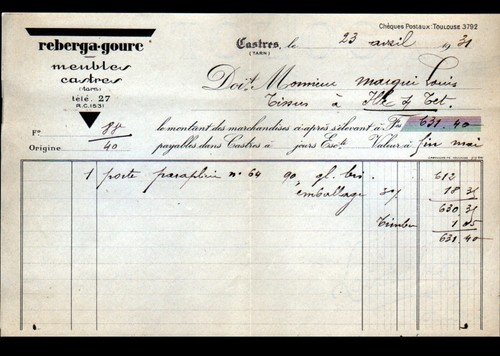 Chèques Postaux: TOULOUSE 3792
reberga-gourc
meubles
castres
(tarn)
télé. 27
R.C. 1531
Castres, le 23 avril 1931
(TARN)
Doit Monsieur marqui Louis
Tissus à Ille s/ Tet.
Fo 88 le montant des marchandises ci-après s'élevant à Frs 631.40
Origine 40 payables dans Castres à jours Escte Valeur à fin mai
1 porte parapluie no 64 90 gl. bis 612
emballage 3% 18 35
630 35
Timbre 1 05
631 40